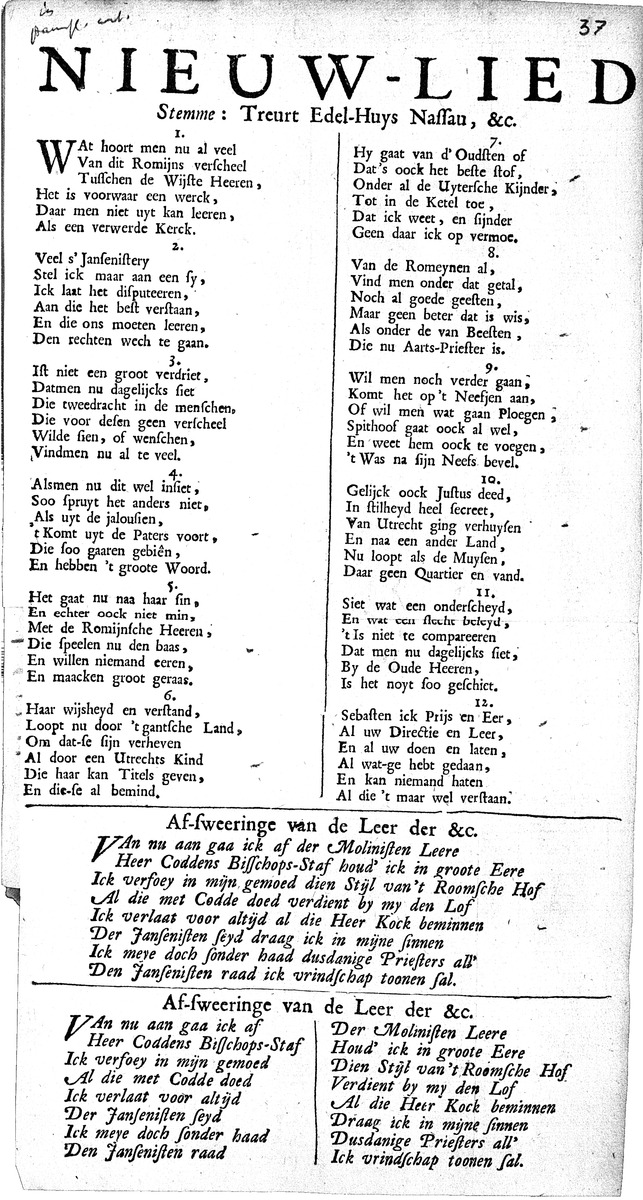 in
pamfl. art.
37
NIEUW-LIED
Stemme: Treurt Edel-Huys Naſſau, &c.
1.
WAt hoort men nu al veel
Van dit Romijns verſcheel
Tuſſchen de Wijſte Heeren,
Het is voorwaar een werck,
Daar men niet uyt kan leeren,
Als een verwerde Kerck.
2.
Veel s'Janſeniſtery
Stel ick maar aan een ſy,
Ick laat het diſputeeren,
Aan die het beſt verſtaan,
En die ons moeten leeren,
Den rechten wech te gaan.
3.
Iſt niet een groot verdriet,
Datmen nu dagelijcks ſiet
Die tweedracht in de menſchen,
Die voor deſen geen verſcheel
Wilde ſien, of wenſchen,
Vindmen nu al te veel.
4.
Alsmen nu dit wel inſiet,
Soo ſpruyt het anders niet,
Als uyt de jalouſien,
't Komt uyt de Paters voort,
Die ſoo gaaren gebiên,
En hebben 't groote Woord.
5.
Het gaat nu naa haar ſin,
En echter oock niet min,
Met de Romijnſche Heeren,
Die ſpeelen nu den baas,
En willen niemand eeren,
En maacken groot geraas.
6.
Haar wijsheyd en verſtand,
Loopt nu door 't gantſche Land,
Om dat-ſe ſijn verheven
Al door een Utrechts Kind
Die haar kan Titels geven,
En die-ſe al bemind.
7.
Hy gaat van d'Oudſten of
Dat's oock het beſte ſtof,
Onder al de Uyterſche Kijnder,
Tot in de Ketel toe,
Dat ick weet, en ſijnder
Geen daar ick op vermoe.
8.
Van de Romeynen al,
Vind men onder dat getal,
Noch al goede geeſten,
Maar geen beter dat is wis,
Als onder de van Beeſten,
Die nu Aarts-Prieſter is.
9.
Wil men noch verder gaan,
Komt het op't Neefjen aan,
Of wil men wat gaan Ploegen,
Spithoof gaat oock al wel,
En weet hem oock te voegen,
't Was na ſijn Neefs bevel.
10.
Gelijck oock Juſtus deed,
In ſtilheyd heel ſecreet,
Van Utrecht ging verhuyſen
En naa een ander Land,
Nu loopt als de Muyſen,
Daar geen Quartier en vand.
11.
Siet wat een onderſcheyd,
En wat een ſlecht beleyd,
't Is niet te compareeren
Dat men nu dagelijcks ſiet,
By de Oude Heeren,
Is het noyt ſoo geſchiet.
12.
Sebaſten ick Prijs en Eer,
Al uw Directie en Leer,
En al uw doen en laten,
Al wat-ge hebt gedaan,
En kan niemand haten
Al die 't maar wel verſtaan.
Af-ſweeringe van de Leer der &c.
VAn nu aan gaa ick af der Moliniſten Leere
Heer Coddens Biſſchops-Staf houd' ick in groote Eere
Ick verfoey in mijn gemoed dien Stijl van't Roomſche Hof
Al die met Codde doed verdient by my den Lof
Ick verlaat voor altijd al die Heer Kock beminnen
Der Janſeniſten ſeyd draag ick in mijne ſinnen
Ick meye doch ſonder haad dusdanige Prieſters all'
Den Janſeniſten raad ick vrindſchap toonen ſal.
Af-ſweeringe van de Leer der &c.
VAn nu aan gaa ick af
Heer Coddens Biſſchops-Staf
Ick verfoey in mijn gemoed
Al die met Codde doed
Ick verlaat voor altijd
Der Janſeniſten ſeyd
Ick meye doch ſonder haad
Den Janſeniſten raad
Der Moliniſten Leere
Houd' ick in groote Eere
Dien Stijl van't Roomſche Hof
Verdient by my den Lof
Al die Heer Kock beminnen
Draag ick in mijne ſinnen
Dusdanige Prieſters all'
Ick vrindſchap toonen ſal.